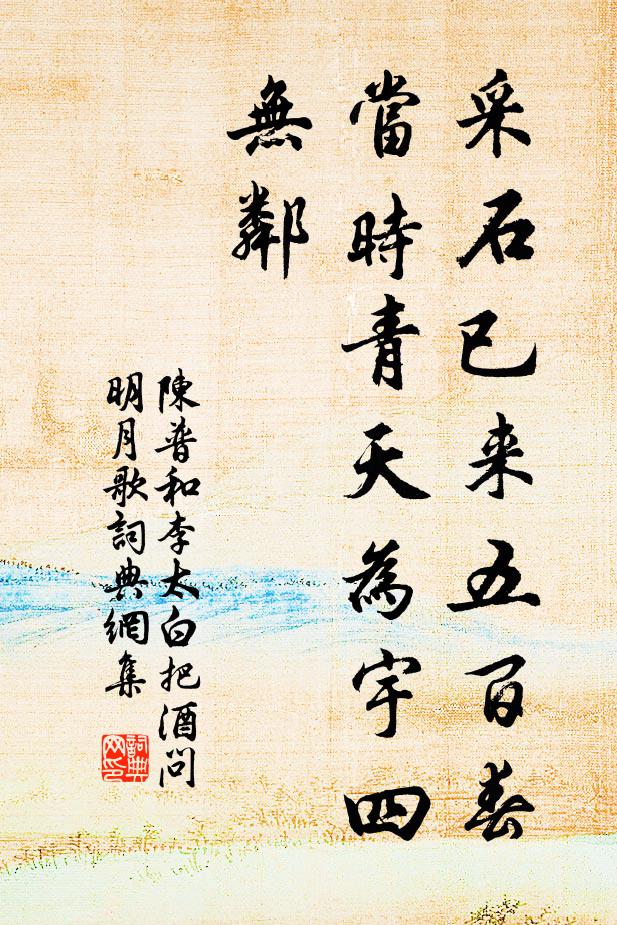 采石已来五百春
當時青天為宇四
無鄰
陳普和李太白把酒問
明月歌詞典網集
詞典網印